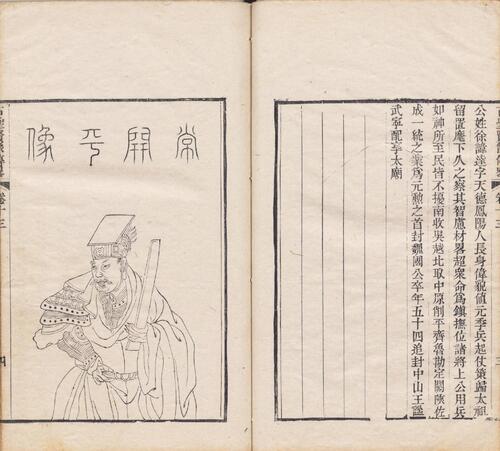 公姓徐諱達字天德鳳陽人長身偉貌値元季兵起仗策歸太祖
留置麾下久之察其智慮材畧超衆命爲鎭撫位諸將上公用兵
如神所至民皆不擾南收吳越北取中原削平齊魯勘定關陝佐
成一統之業爲元勲之首封魏國公卒年五十四追封中山王諡
武寧配享太廟
常開平像
卷十三
四